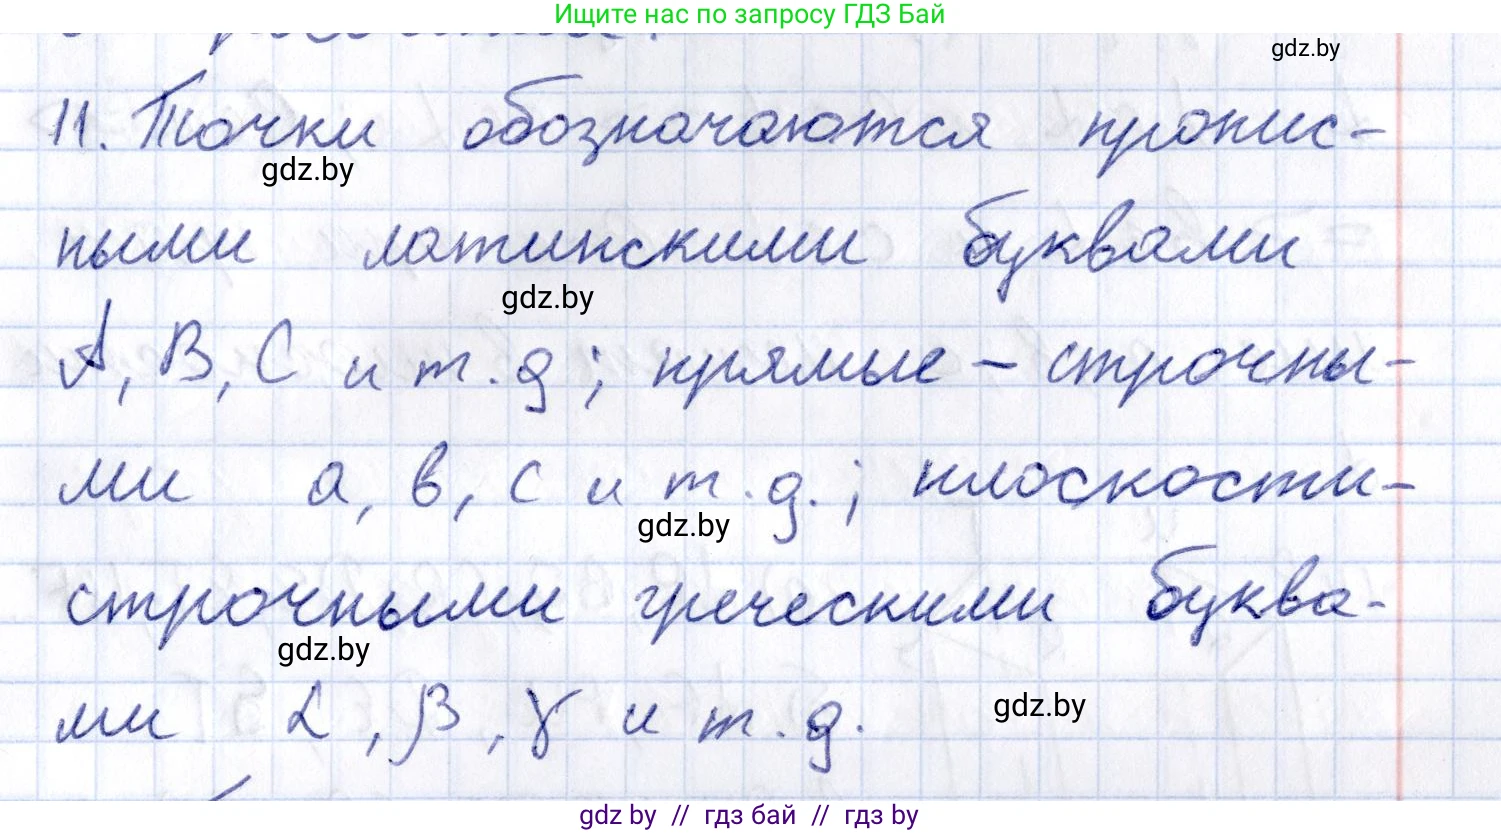 Ищите нас по запросу ГДЗ Бай
gdz.by
11. Точки обозначаются пропис-
gdz.by
ными латинскими буквами
gdz.by
A, B, C и т.д; прямые – строчны-
ми a, b, c и т.д.; плоскости-
gdz.by
строчными греческими буква-
gdz.by
ми α, β, γ и т.д.
gdz.by
gdz.by // гдз бай // гдз by